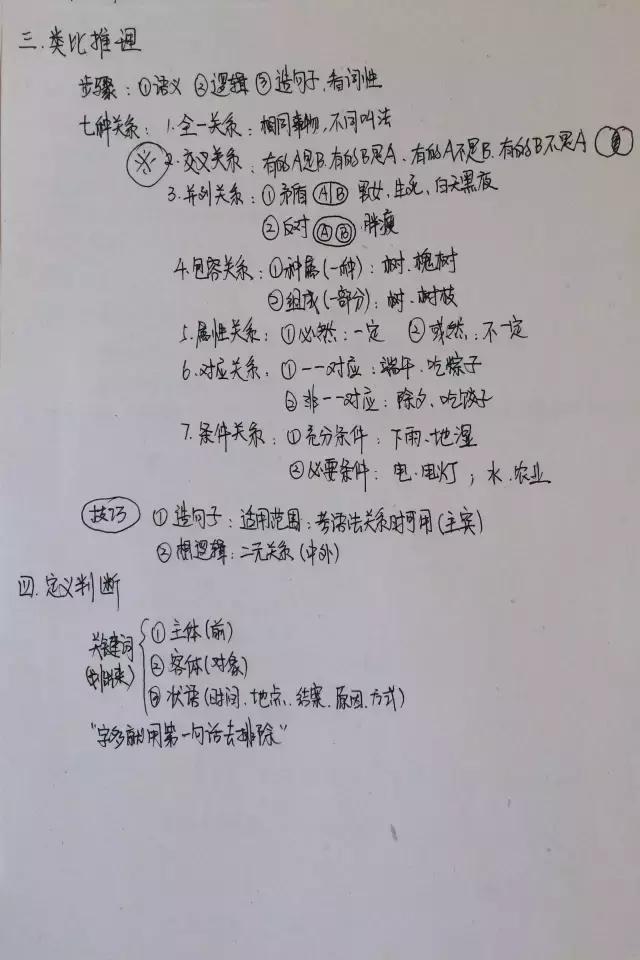 三.类比推理
步骤：①语义 ②逻辑 ③造句子,看词性
七种关系：1.全一关系：相同事物,不同叫法
※ 2.交叉关系：有的A是B.有的B是A.有的A不是B.有的B不是A
3.并列关系：①矛盾 A B 男女、生死、白天黑夜
②反对 A B 胖瘦
4.包容关系：①种属(一种)：树.槐树
②组成(一部分)：树.树枝
5.属性关系：①必然：一定 ②或然：不一定
6.对应关系：①一一对应：端午.吃粽子
②非一一对应：除夕、吃饺子
7.条件关系：①充分条件：下雨、地湿
②必要条件：电.电灯；水.农业
技巧 ①造句子：适用范围：考语法关系时可用(主宾)
②想逻辑：二元关系(中外)
四.定义判断
关键词(划出来)
①主体(前)
②客体(对象)
③状语(时间、地点、结果、原因、方式)
“字多就用第一句话去排除”